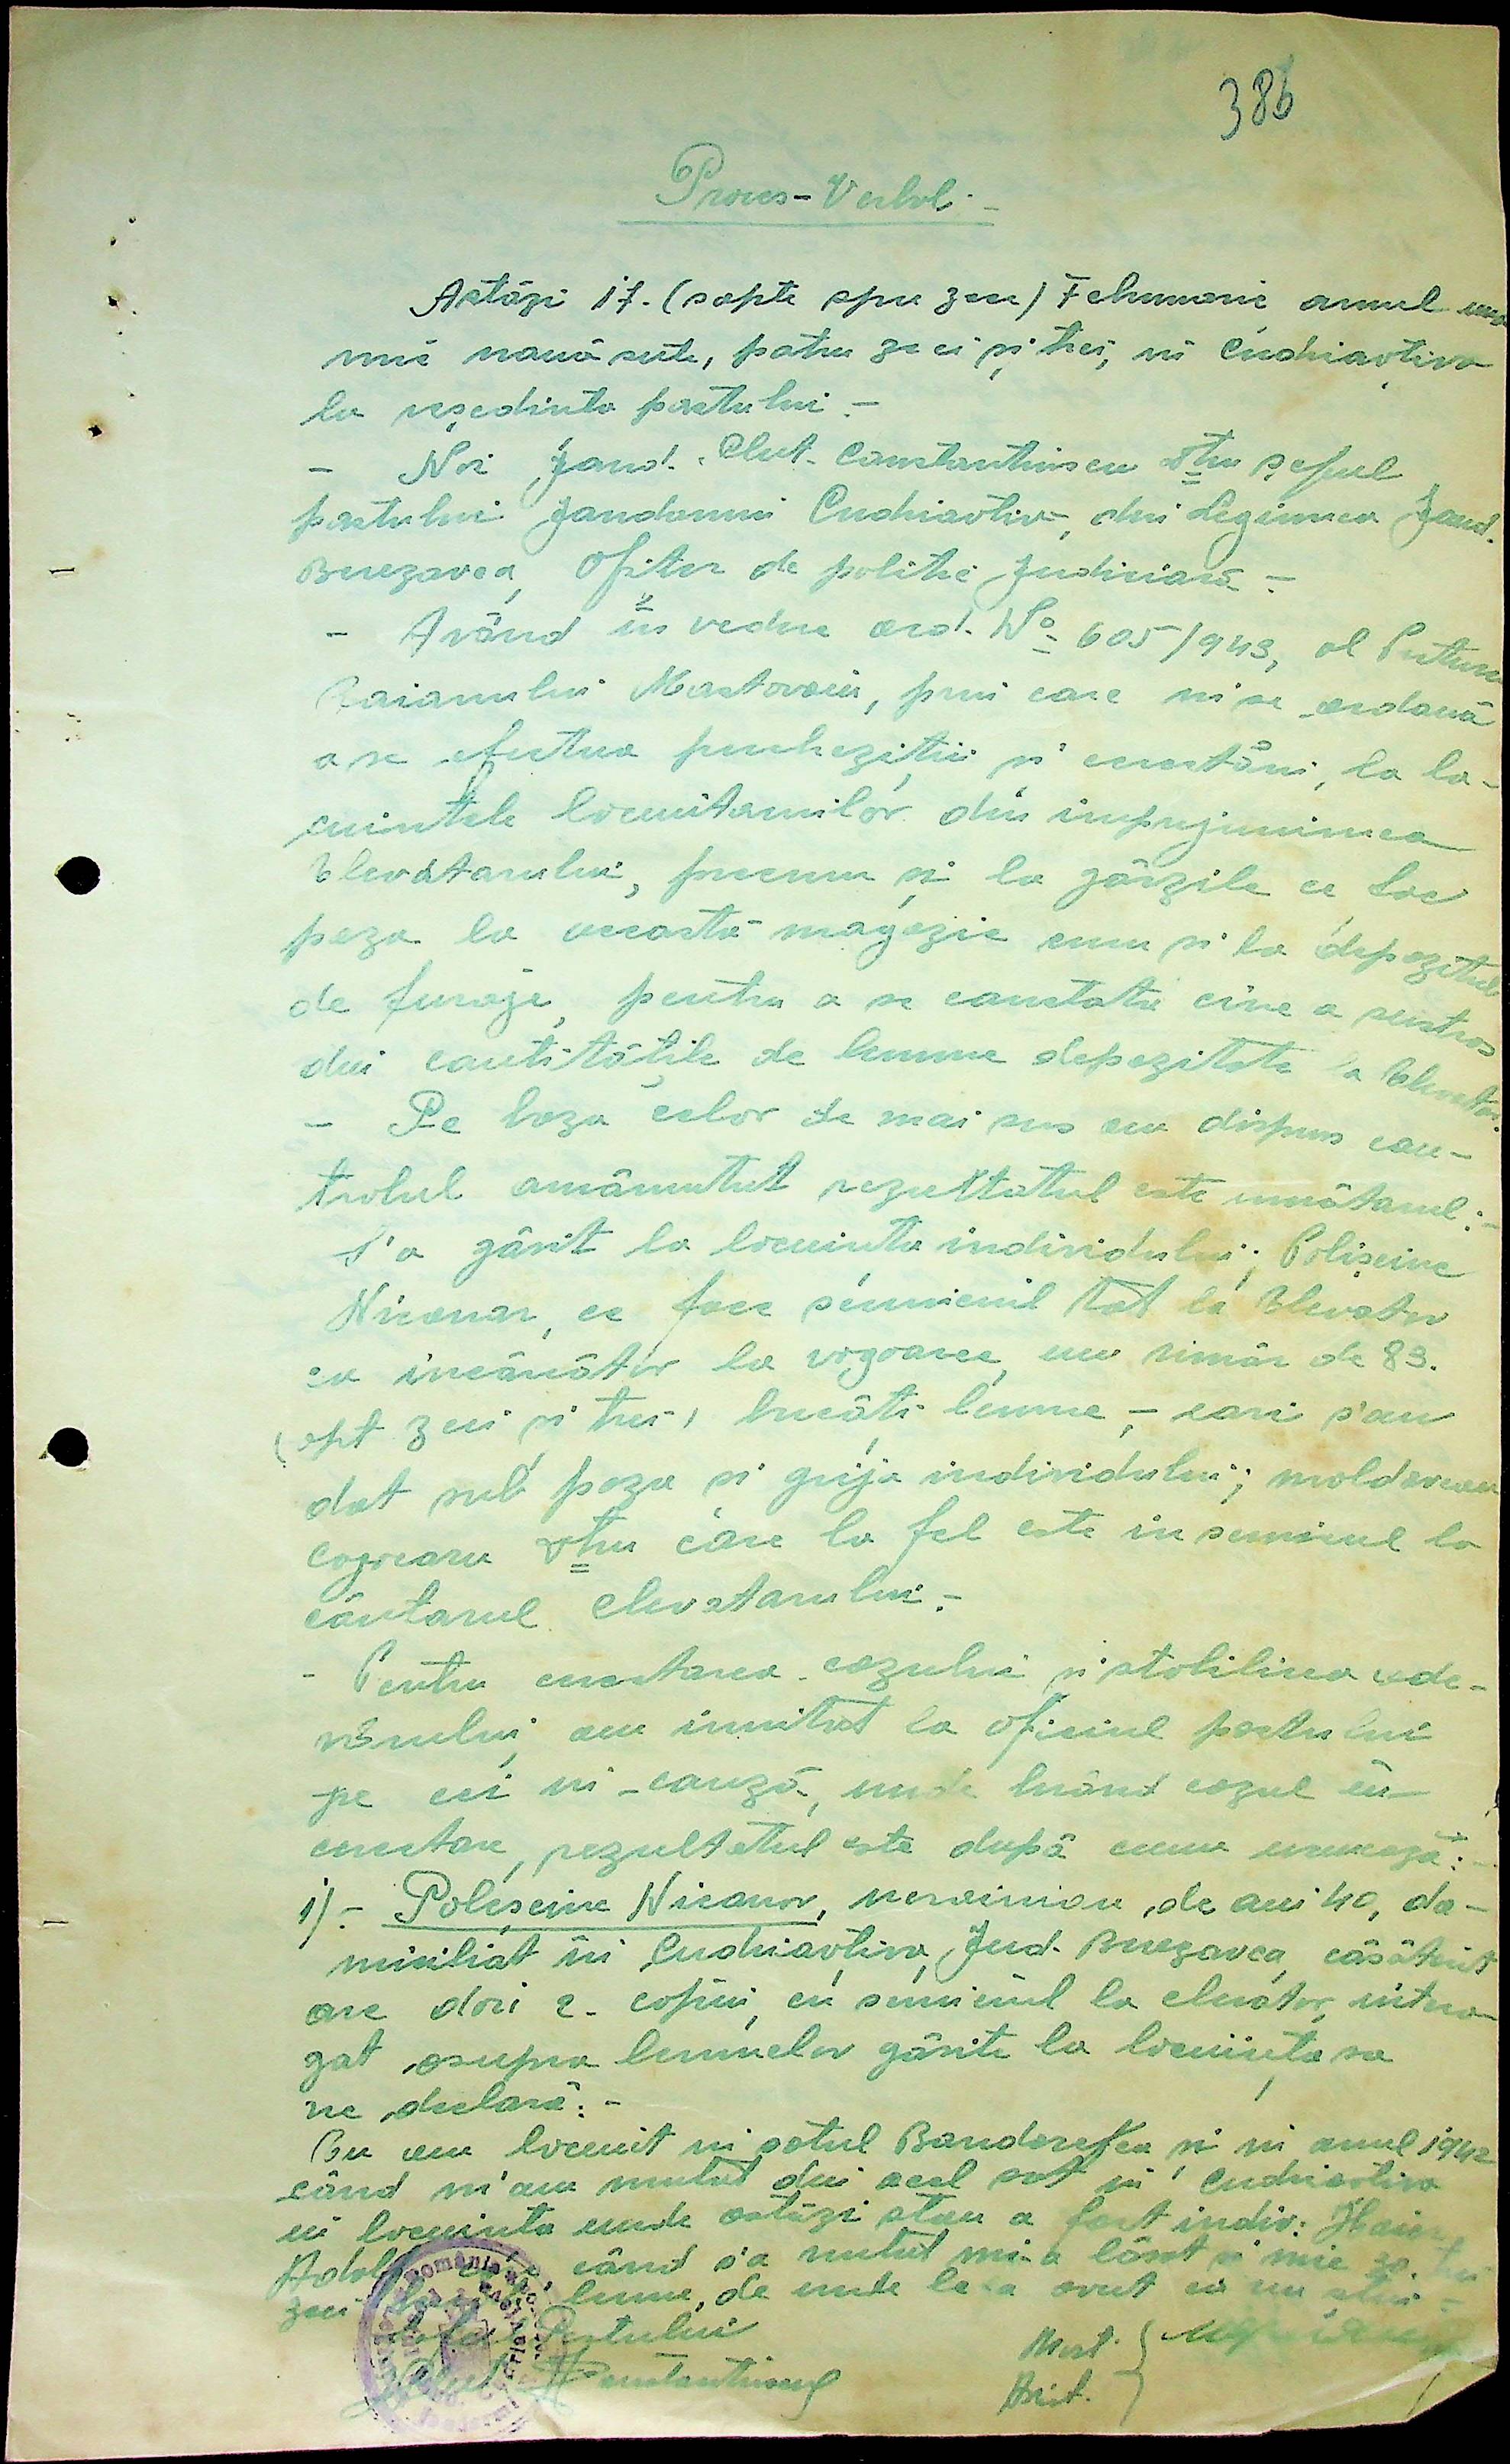 386
Proces-Verbal.-
Astăzi 17. (sapte spre zece) Februarie anul una
mie nouă sute, patru zeci și trei, in Cudriavtiva
la reședinta postului.-
- Noi Jand. Elut. Constantinescu Dtru șeful
postului Jandarmi Cudriavtiva, din Legiunea Jand.
Berezovca, Ofiter de politie Judiciară -
- Având în vedere ord. No 605/943, al Preturei
Raionului Mostovoiu, prin care ni se ordonă
a se efectua perchezitii și cercetări, la lo-
cuintele locuitorilor din imprejurimea
Elevatorului, precum și la gărzile ce fac
paza la această magazie cum si la depozitul
de furaje, pentru a se constata cine a sustras
din cantitățile de lemne depozitate la Elevator.
- Pe baza celor de mai sus am dispus con-
trolul amănuntut rezultatul este următorul:-
S'a găsit la locuinta individului; Polișciuc
Nicanor, ce face serviciul tot la Elevator
ca incărcător la vagoane, un număr de 83.
(opt zeci și trei, bucăți lemne,- cari s'au
dat sub paza si grija individului; moldovean
Cojocaru Dtru care la fel este in serviciul la
cântarul elevatorului.-
- Pentru cercetarea cazului și stabilirea ade-
vărului, am invitat la oficiul postului
pe cei in cauză, unde luând cazul în
cercetare, rezultatul este după cum urmează:-
1).- Polișciuc Nicanor, ucrainian, de ani 40, do-
miciliat în Cudriavtiva, Jud. Berezovca, căsătorit
are doui 2. copii, cu serviciul la elevator, intero-
gat asupra lemnelor găsite la locuința sa
ne declară:-
Eu am locuit in satul Bandarefca și in anul 1942
când m'am mutat din acel sat in Cudriavtiva
in locuinta unde astăzi stau a fost indiv:
când s'a mutat mi-a lăsat și mie 30.
zeci lemne, de unde le-a avut eu nu știu -
Șeful Postului
Constantinescu
Mart.
Asist.